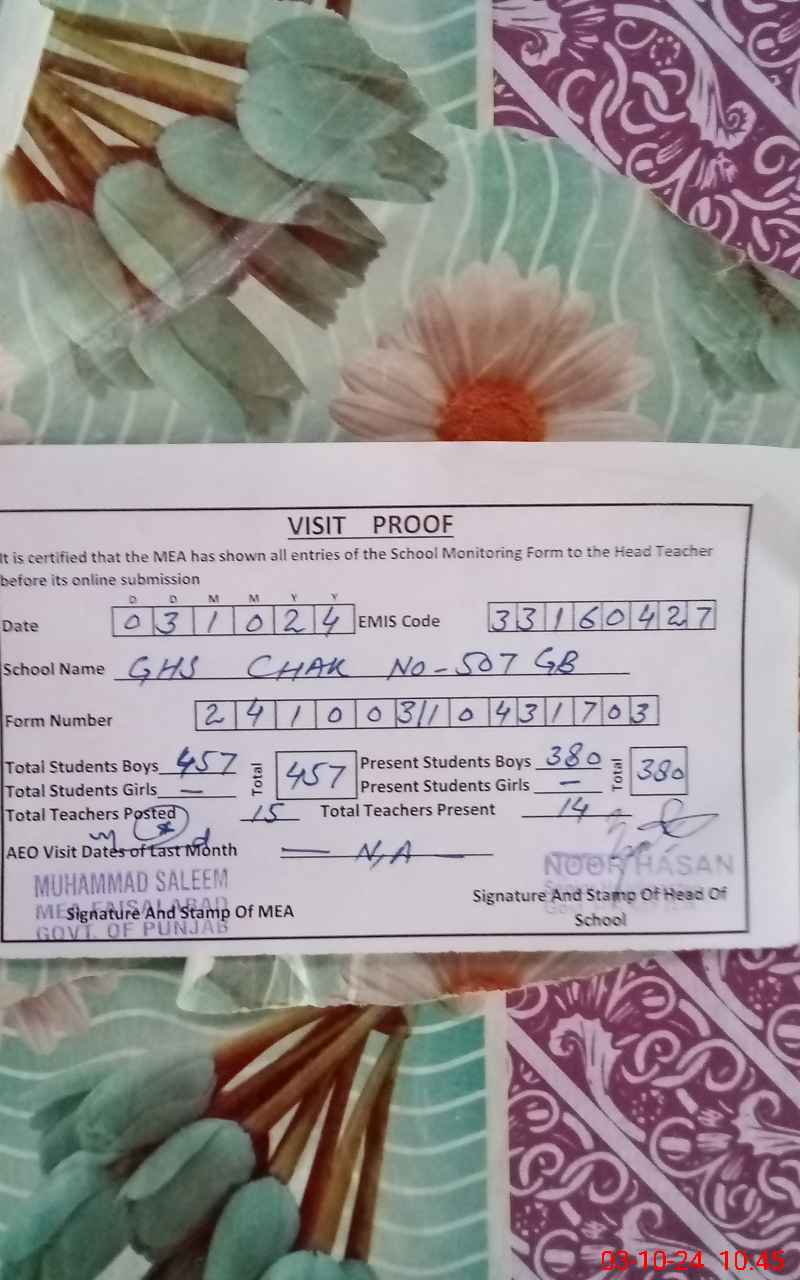 VISIT PROOF
It is certified that the MEA has shown all entries of the School Monitoring Form to the Head Teacher
before its online submission
D D M M Y Y
Date 031024 EMIS Code 33160427
School Name GHS CHAK NO-507 GB
Form Number 24100311043 1703
Total Students Boys 457 Total 457 Present Students Boys 380 Total 380
Total Students Girls — Present Students Girls —
Total Teachers Posted 15 Total Teachers Present 14
AEO Visit Dates of Last Month — N,A —
MUHAMMAD SALEEM NOOR HASAN
MEA FAISALABAD
Signature And Stamp Of MEA Signature And Stamp Of Head Of
School
GOVT. OF PUNJAB
03-10-24 10.45